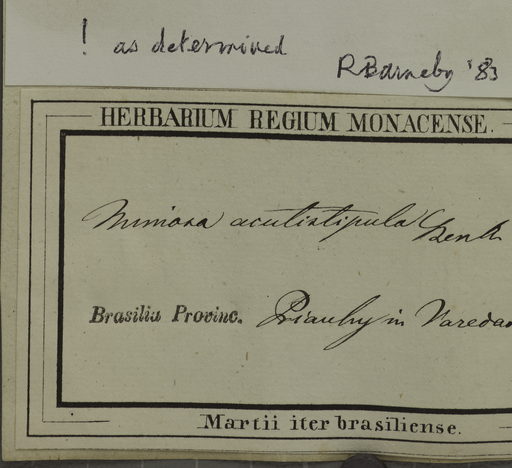 ! as determined
RBarneby '83
HERBARIUM REGIUM MONACENSE.
Mimosa acutistipula Benth
Brasilia Provinc. Piauhy in Varedas
Martii iter brasiliense.